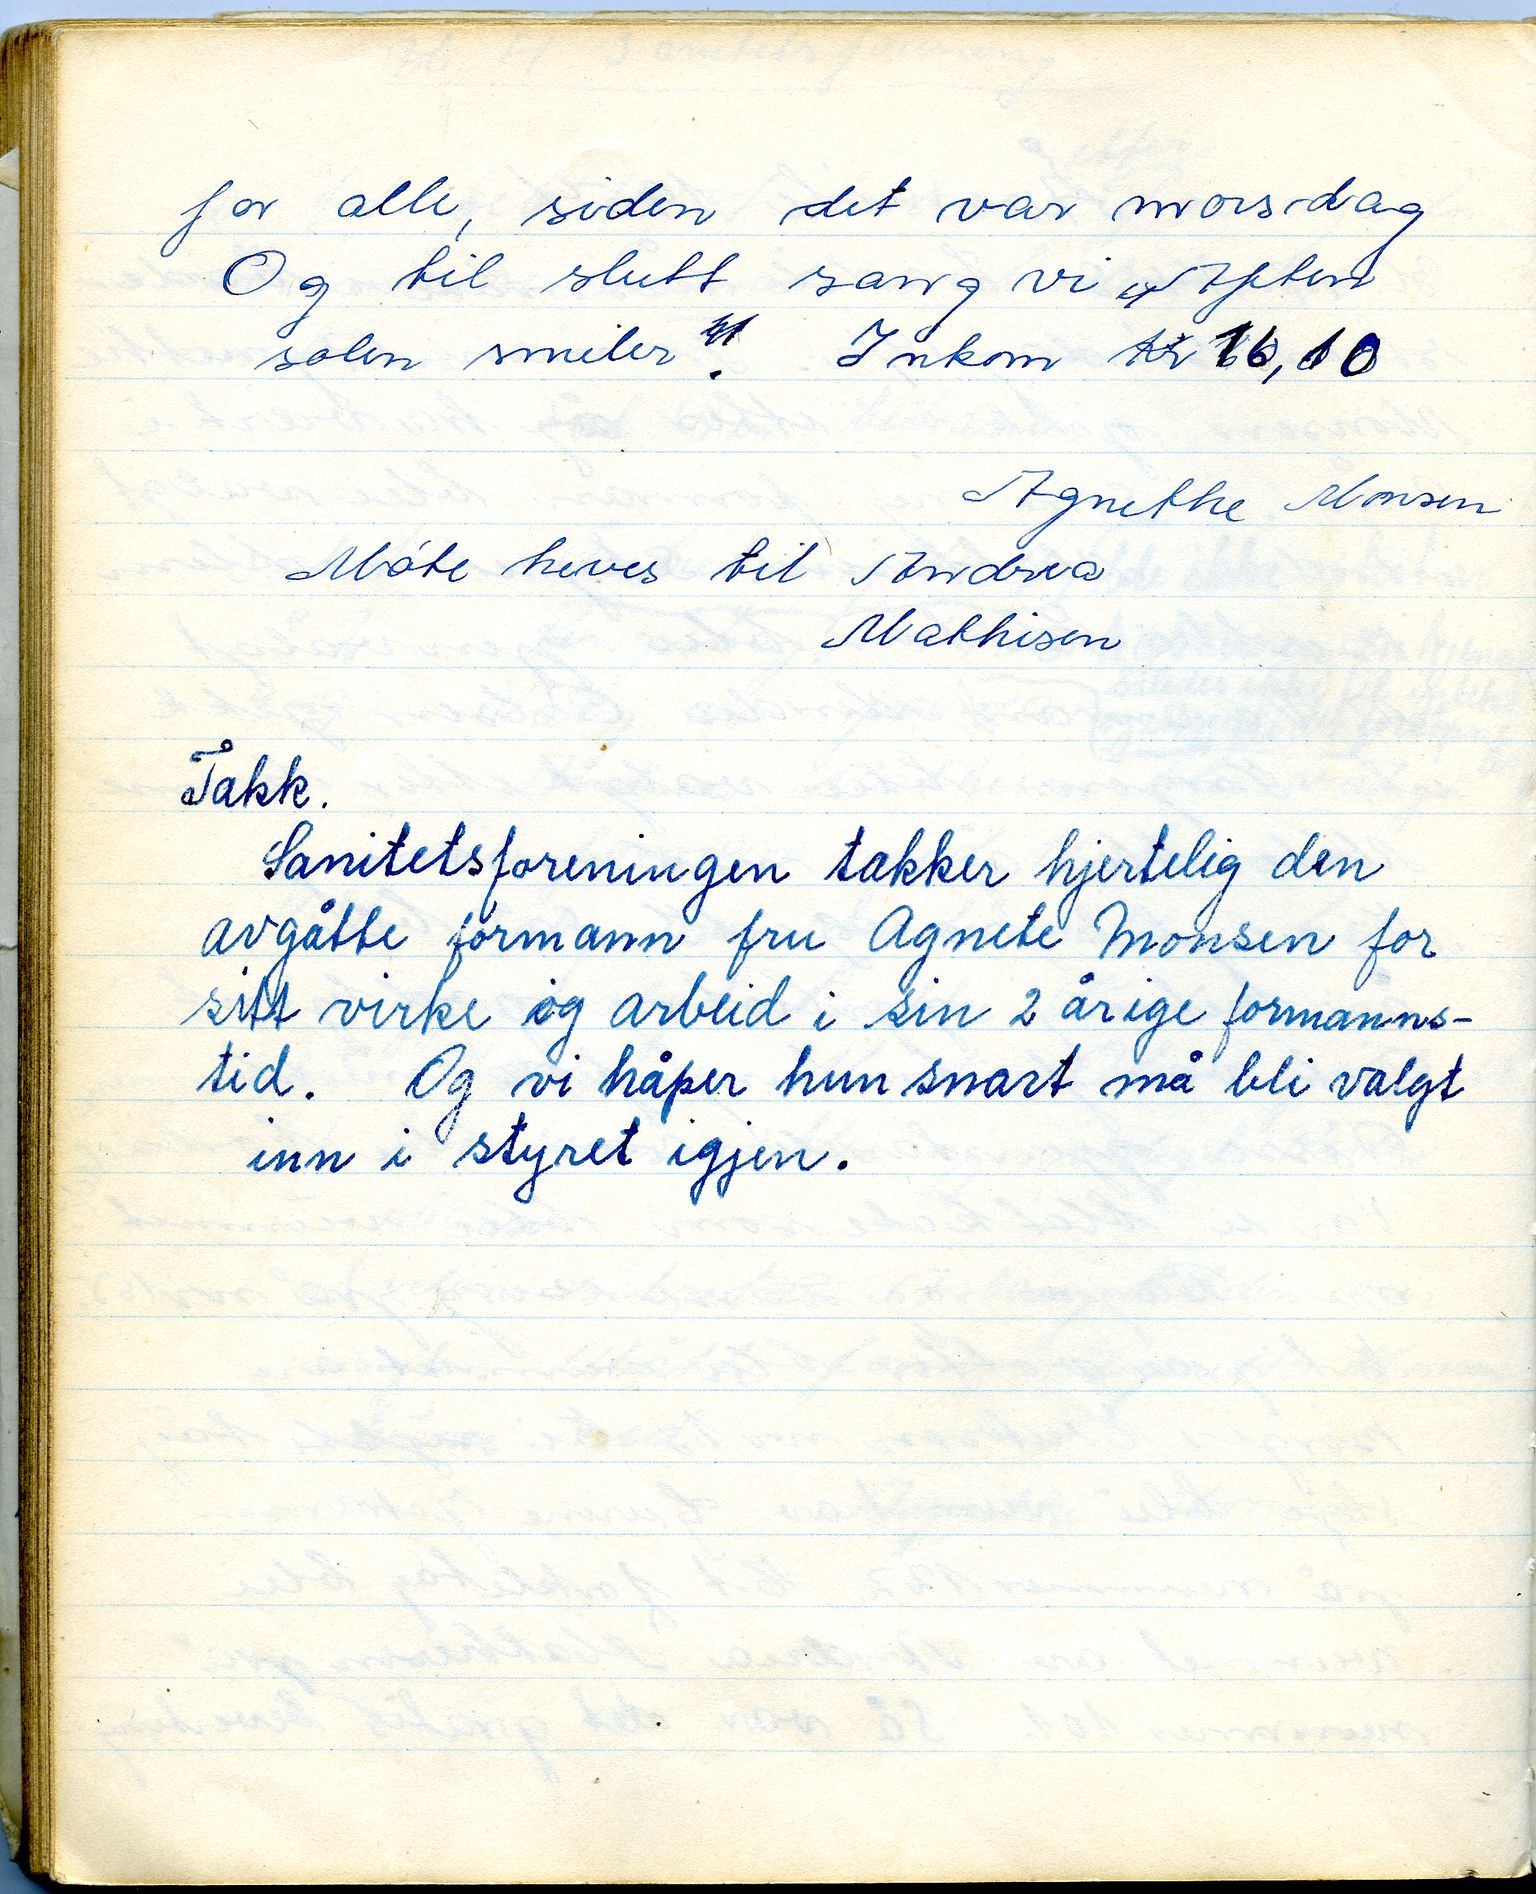 for alle, siden det var morsdag
Og til slutt sang vi „Aften
solen smiler". Inkom kr 16,10
Agnethe Monsen
Møte heves til Andrea
Mathisen
Takk.
Sanitetsforeningen takker hjertelig den
avgåtte formann fru Agnete Monsen for
sitt virke og arbeid i sin 2 årige formanns-
tid. Og vi håper hun snart må bli valgt
inn i styret igjen.